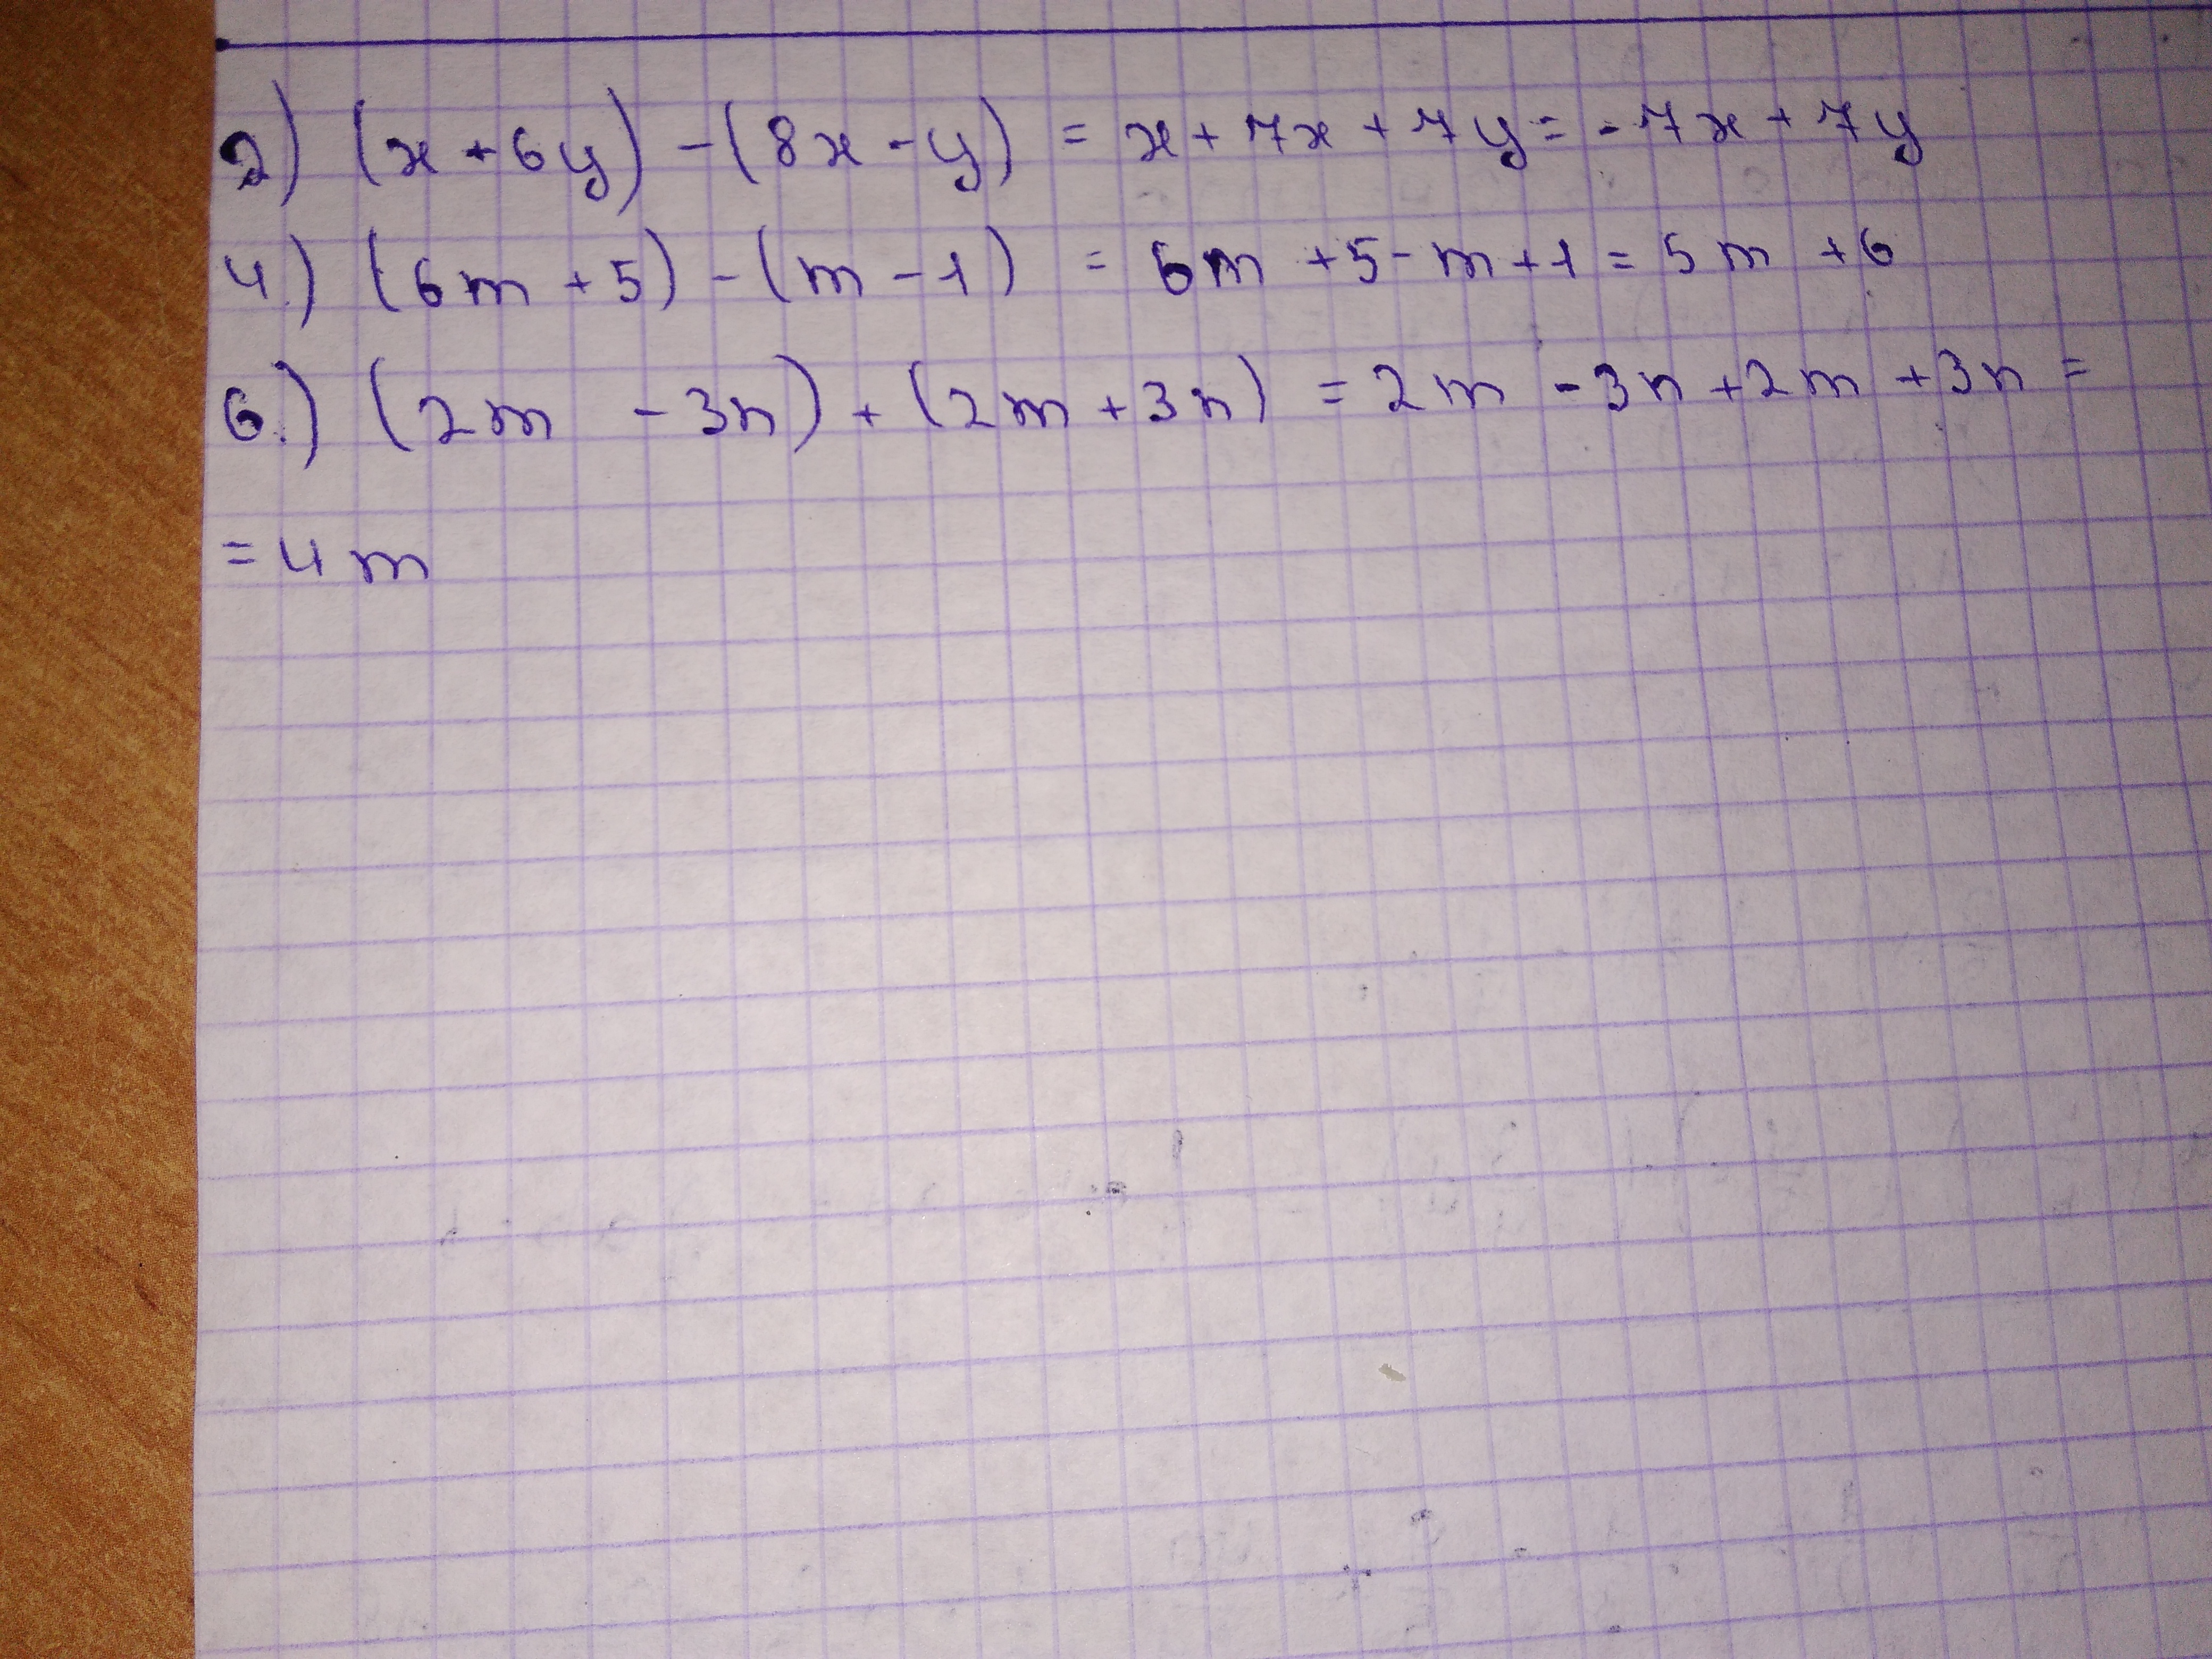 2) (x + 6y) - (8x - y) = x + 7x + 7y = -7x + 7y
4.) (6m + 5) - (m - 1) = 6m + 5 - m + 1 = 5m + 6
6.) (2m - 3n) + (2m + 3n) = 2m - 3n + 2m + 3n =
= 4m